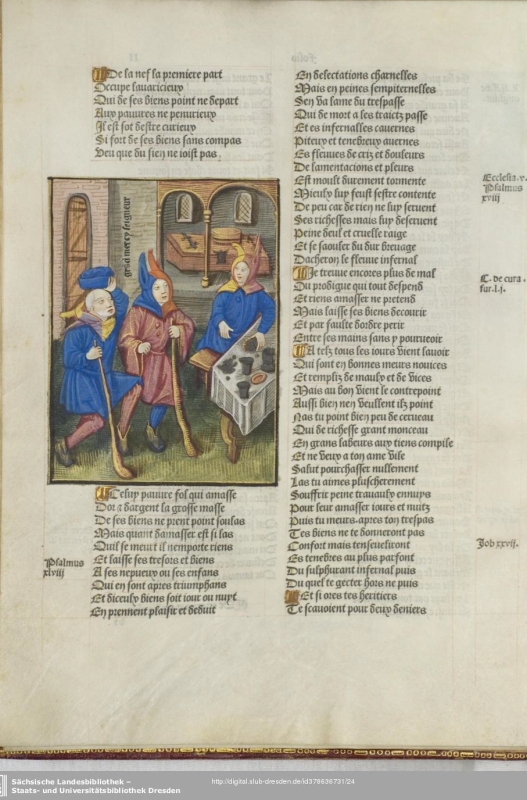 De la nef la premiere part
Occupe lauaricieux
Qui de ses biens point ne depart
Aux pauures ne penurieux
Il est fol destre curieux
Si fort de ses biens sans compas
Veu que du sien ne ioist pas
grād mercy seigneur
Celuy pauure fol qui amasse
Dor & dargent la grosse masse
De ses biens ne prent point soulas
Mais quant damasser est si las
Quil se meurt il nemporte riens
Et laisse ses tresors et biens
A ses nepueux ou ses enfans
Qui en sont apres triumphans
Et diceulx biens soit iour ou nuyt
En prennent plaisir et deduit
Psalmus
xlviij
En delectations charnelles
Mais en peines sempiternelles
Sen va lame du trespasse
Qui de mort a les traictz passe
Et es infernalles cauernes
Piteux et tenebreux auernes
Es fleuues de criz et douleurs
De lamentacions et pleurs
Est moult durement tormente
Mieulx luy feust sestre contente
De peu car de rien ne luy seruent
Ses richesses mais luy deseruent
Peine deuil et cruelle raige
Et se saouler du dur breuage
Dacheron le fleuue infernal
Je treuue encores plus de mal
Du prodigue qui tout despend
Et riens amasser ne pretend
Mais laisse ses biens decourir
Et par faulte dordre perir
Entre ses mains sans y pourueoir
A telz tous les iours vient sauoir
Qui sont en bonnes meurs nouices
Et rempliz de maulx et de vices
Mais au bon vient le contrepoint
Aussi bien nen veullent ilz point
Nas tu point bien peu de cerueau
Qui de richesse grant monceau
En grans labeurs aux tiens compile
Et ne veux a ton ame vile
Salut pourchasser nullement
Las tu aimes plus cherement
Souffrir peine trauaulx ennuys
Pour leur amasser iours et nuitz
Puis tu meurs apres ton trespas
Tes biens ne te donneront pas
Confort mais tenseueliront
Es tenebres au plus parfont
Du sulphurant infernal puis
Du quel te gecter hors ne puis
Et si ores tes heritiers
Te scauoient pour deux deniers
Ecclesia. v.
Psalmus
xviij
C. de cura.
fur. l. j.
Job xxvij.
Sächsische Landesbibliothek –
Staats- und Universitätsbibliothek Dresden
http://digital.slub-dresden.de/id378636731/24